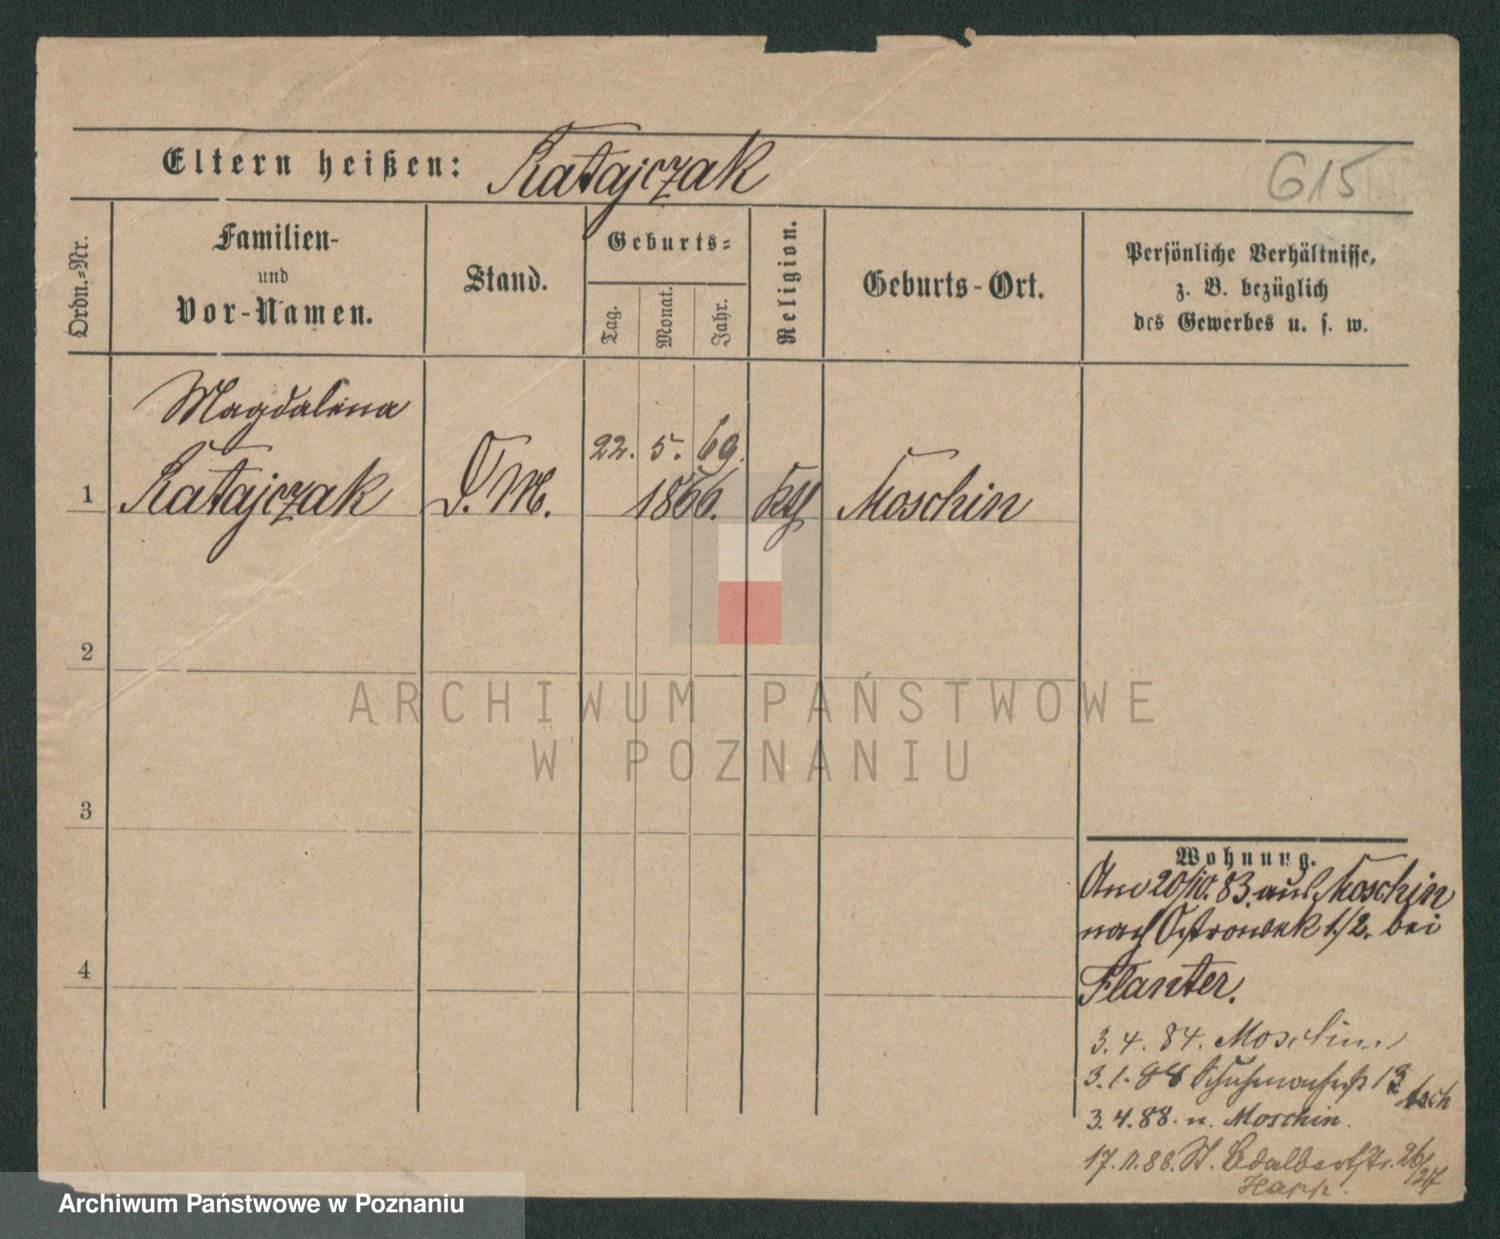 Eltern heißen: Ratajczak
615
Ordn.-Nr.
Familien-
und
Vor-Namen.
Stand.
Geburts-
Tag.
Monat.
Jahr.
Religion.
Geburts-Ort.
Persönliche Verhältnisse,
z. B. bezüglich
des Gewerbes u. s. w.
Magdalena
22. 5. 69.
1 Ratajczak D. M. 1866. kth Moschin
2
3
4
ARCHIWUM PAŃSTWOWE
W POZNANIU
Wohnung.
Am 20/10. 83. aus Moschin
nach Ostrowek 1/2. bei
Flanter.
3. 4. 84. Moschin
3. 1. 88 Schuhmacherstr 13
3. 4. 88. n. Moschin.
17. 11. 88. St. Adalbertstr. 26/27
Archiwum Państwowe w Poznaniu